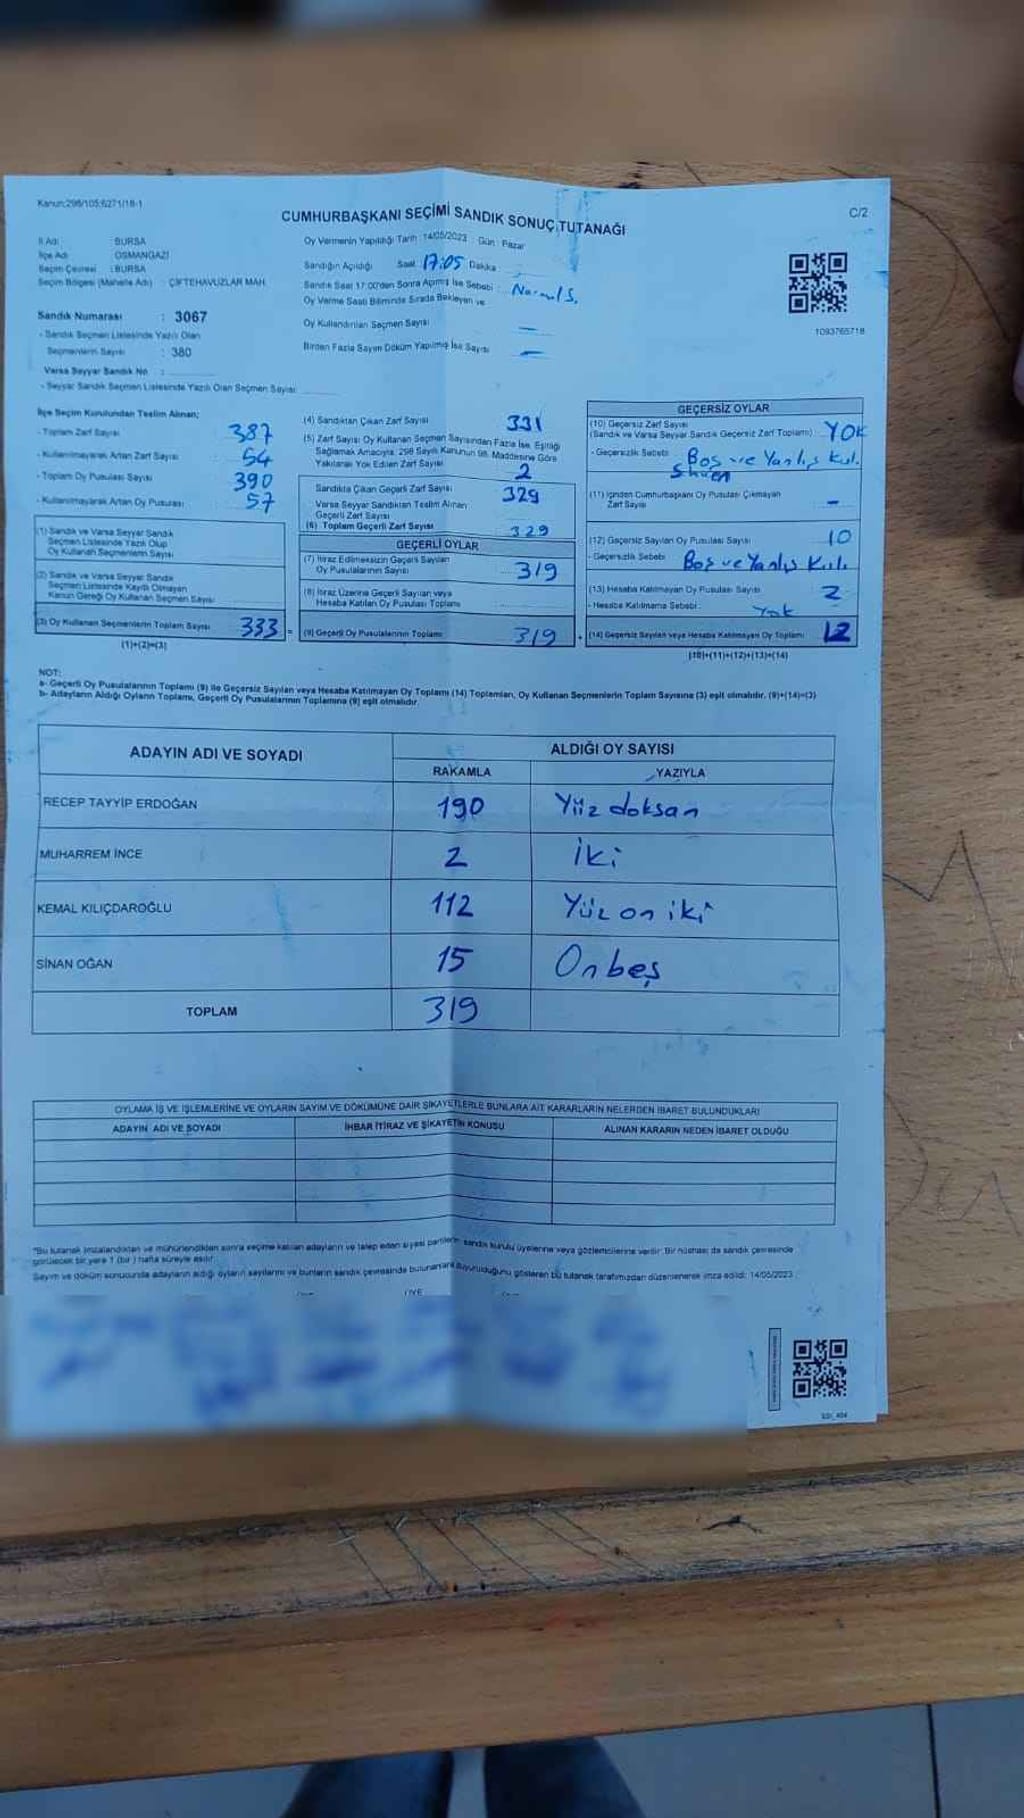 Kanun:298/105;6271/18-1
CUMHURBAŞKANI SEÇİMİ SANDIK SONUÇ TUTANAĞI
C/2
İl Adı : BURSA
İlçe Adı : OSMANGAZİ
Seçim Çevresi : BURSA
Seçim Bölgesi (Mahalle Adı) : ÇİFTEHAVUZLAR MAH.
Sandık Numarası : 3067
- Sandık Seçmen Listesinde Yazılı Olan
Seçmenlerin Sayısı : 380
Varsa Seyyar Sandık No :
- Seyyar Sandık Seçmen Listesinde Yazılı Olan Seçmen Sayısı:
Oy Vermenin Yapıldığı Tarih : 14/05/2023 Gün : Pazar
Sandığın Açıldığı Saat 17:05 Dakika
Sandık Saat 17:00'den Sonra Açılmış İse Sebebi : Normal S.
Oy Verme Saati Bitiminde Sırada Bekleyen ve
Oy Kullandırılan Seçmen Sayısı —
Birden Fazla Sayım Döküm Yapılmış İse Sayısı —
1093765718
İlçe Seçim Kurulundan Teslim Alınan;
- Toplam Zarf Sayısı 387
- Kullanılmayarak Artan Zarf Sayısı 54
- Toplam Oy Pusulası Sayısı 390
- Kullanılmayarak Artan Oy Pusulası 57
(1) Sandık ve Varsa Seyyar Sandık
Seçmen Listesinde Yazılı Olup
Oy Kullanan Seçmenlerin Sayısı
(2) Sandık ve Varsa Seyyar Sandık
Seçmen Listesinde Kayıtlı Olmayan
Kanun Gereği Oy Kullanan Seçmen Sayısı
(3) Oy Kullanan Seçmenlerin Toplam Sayısı 333 =
(1)+(2)=(3)
(4) Sandıktan Çıkan Zarf Sayısı 331
(5) Zarf Sayısı Oy Kullanan Seçmen Sayısından Fazla İse, Eşitliği
Sağlamak Amacıyla, 298 Sayılı Kanunun 98. Maddesine Göre
Yakılarak Yok Edilen Zarf Sayısı 2
Sandıkta Çıkan Geçerli Zarf Sayısı 329
Varsa Seyyar Sandıktan Teslim Alınan
Geçerli Zarf Sayısı
(6) Toplam Geçerli Zarf Sayısı 329
GEÇERLİ OYLAR
(7) İtiraz Edilmeksizin Geçerli Sayılan
Oy Pusulalarının Sayısı 319
(8) İtiraz Üzerine Geçerli Sayılan veya
Hesaba Katılan Oy Pusulası Toplamı
(9) Geçerli Oy Pusulalarının Toplamı 319 +
GEÇERSİZ OYLAR
(10) Geçersiz Zarf Sayısı
(Sandık ve Varsa Seyyar Sandık Geçersiz Zarf Toplamı) YOK
- Geçersizlik Sebebi: Boş ve Yanlış Kul.
(11) İçinden Cumhurbaşkanı Oy Pusulası Çıkmayan
Zarf Sayısı -
(12) Geçersiz Sayılan Oy Pusulası Sayısı 10
- Geçersizlik Sebebi: Boş ve Yanlış Kul.
(13) Hesaba Katılmayan Oy Pusulası Sayısı 2
- Hesaba Katılmama Sebebi: Yok
(14) Geçersiz Sayılan veya Hesaba Katılmayan Oy Toplamı 12
(10)+(11)+(12)+(13)=(14)
NOT:
a- Geçerli Oy Pusulalarının Toplamı (9) ile Geçersiz Sayılan veya Hesaba Katılmayan Oy Toplamı (14) Toplamları, Oy Kullanan Seçmenlerin Toplam Sayısına (3) eşit olmalıdır. (9)+(14)=(3)
b- Adayların Aldığı Oyların Toplamı, Geçerli Oy Pusulalarının Toplamına (9) eşit olmalıdır.
ADAYIN ADI VE SOYADI ALDIĞI OY SAYISI
RAKAMLA YAZIYLA
RECEP TAYYİP ERDOĞAN 190 Yüz doksan
MUHARREM İNCE 2 İki
KEMAL KILIÇDAROĞLU 112 Yüz on iki
SİNAN OĞAN 15 Onbeş
TOPLAM 319
OYLAMA İŞ VE İŞLEMLERİNE VE OYLARIN SAYIM VE DÖKÜMÜNE DAİR ŞİKAYETLERLE BUNLARA AİT KARARLARIN NELERDEN İBARET BULUNDUKLARI
ADAYIN ADI VE SOYADI İHBAR İTİRAZ VE ŞİKAYETİN KONUSU ALINAN KARARIN NEDEN İBARET OLDUĞU
*Bu tutanak imzalandıktan ve mühürlendikten sonra seçime katılan adayların ve talep eden siyasi partilerin sandık kurulu üyelerine veya gözlemcilerine verilir. Bir nüshası da sandık çevresinde
görülecek bir yere 1 (bir) hafta süreyle asılır.
Sayım ve döküm sonucunda adayların aldığı oyların sayılarını ve bunların sandık çevresinde bulunanlara duyurulduğunu gösteren bu tutanak tarafımızdan düzenlenerek imza edildi. 14/05/2023
ÜYE